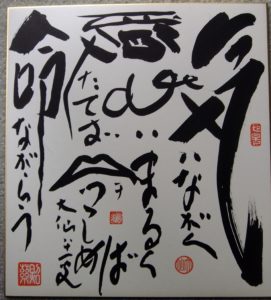 気はながく
心はまるく
腹たてず
口ヲつつしめば
命ながらう
大仙